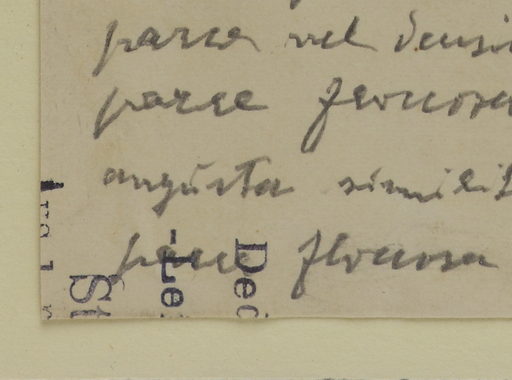 parce vel densi
parce floccosa
angusta simili
parce floccosa
Dec
-Le
St